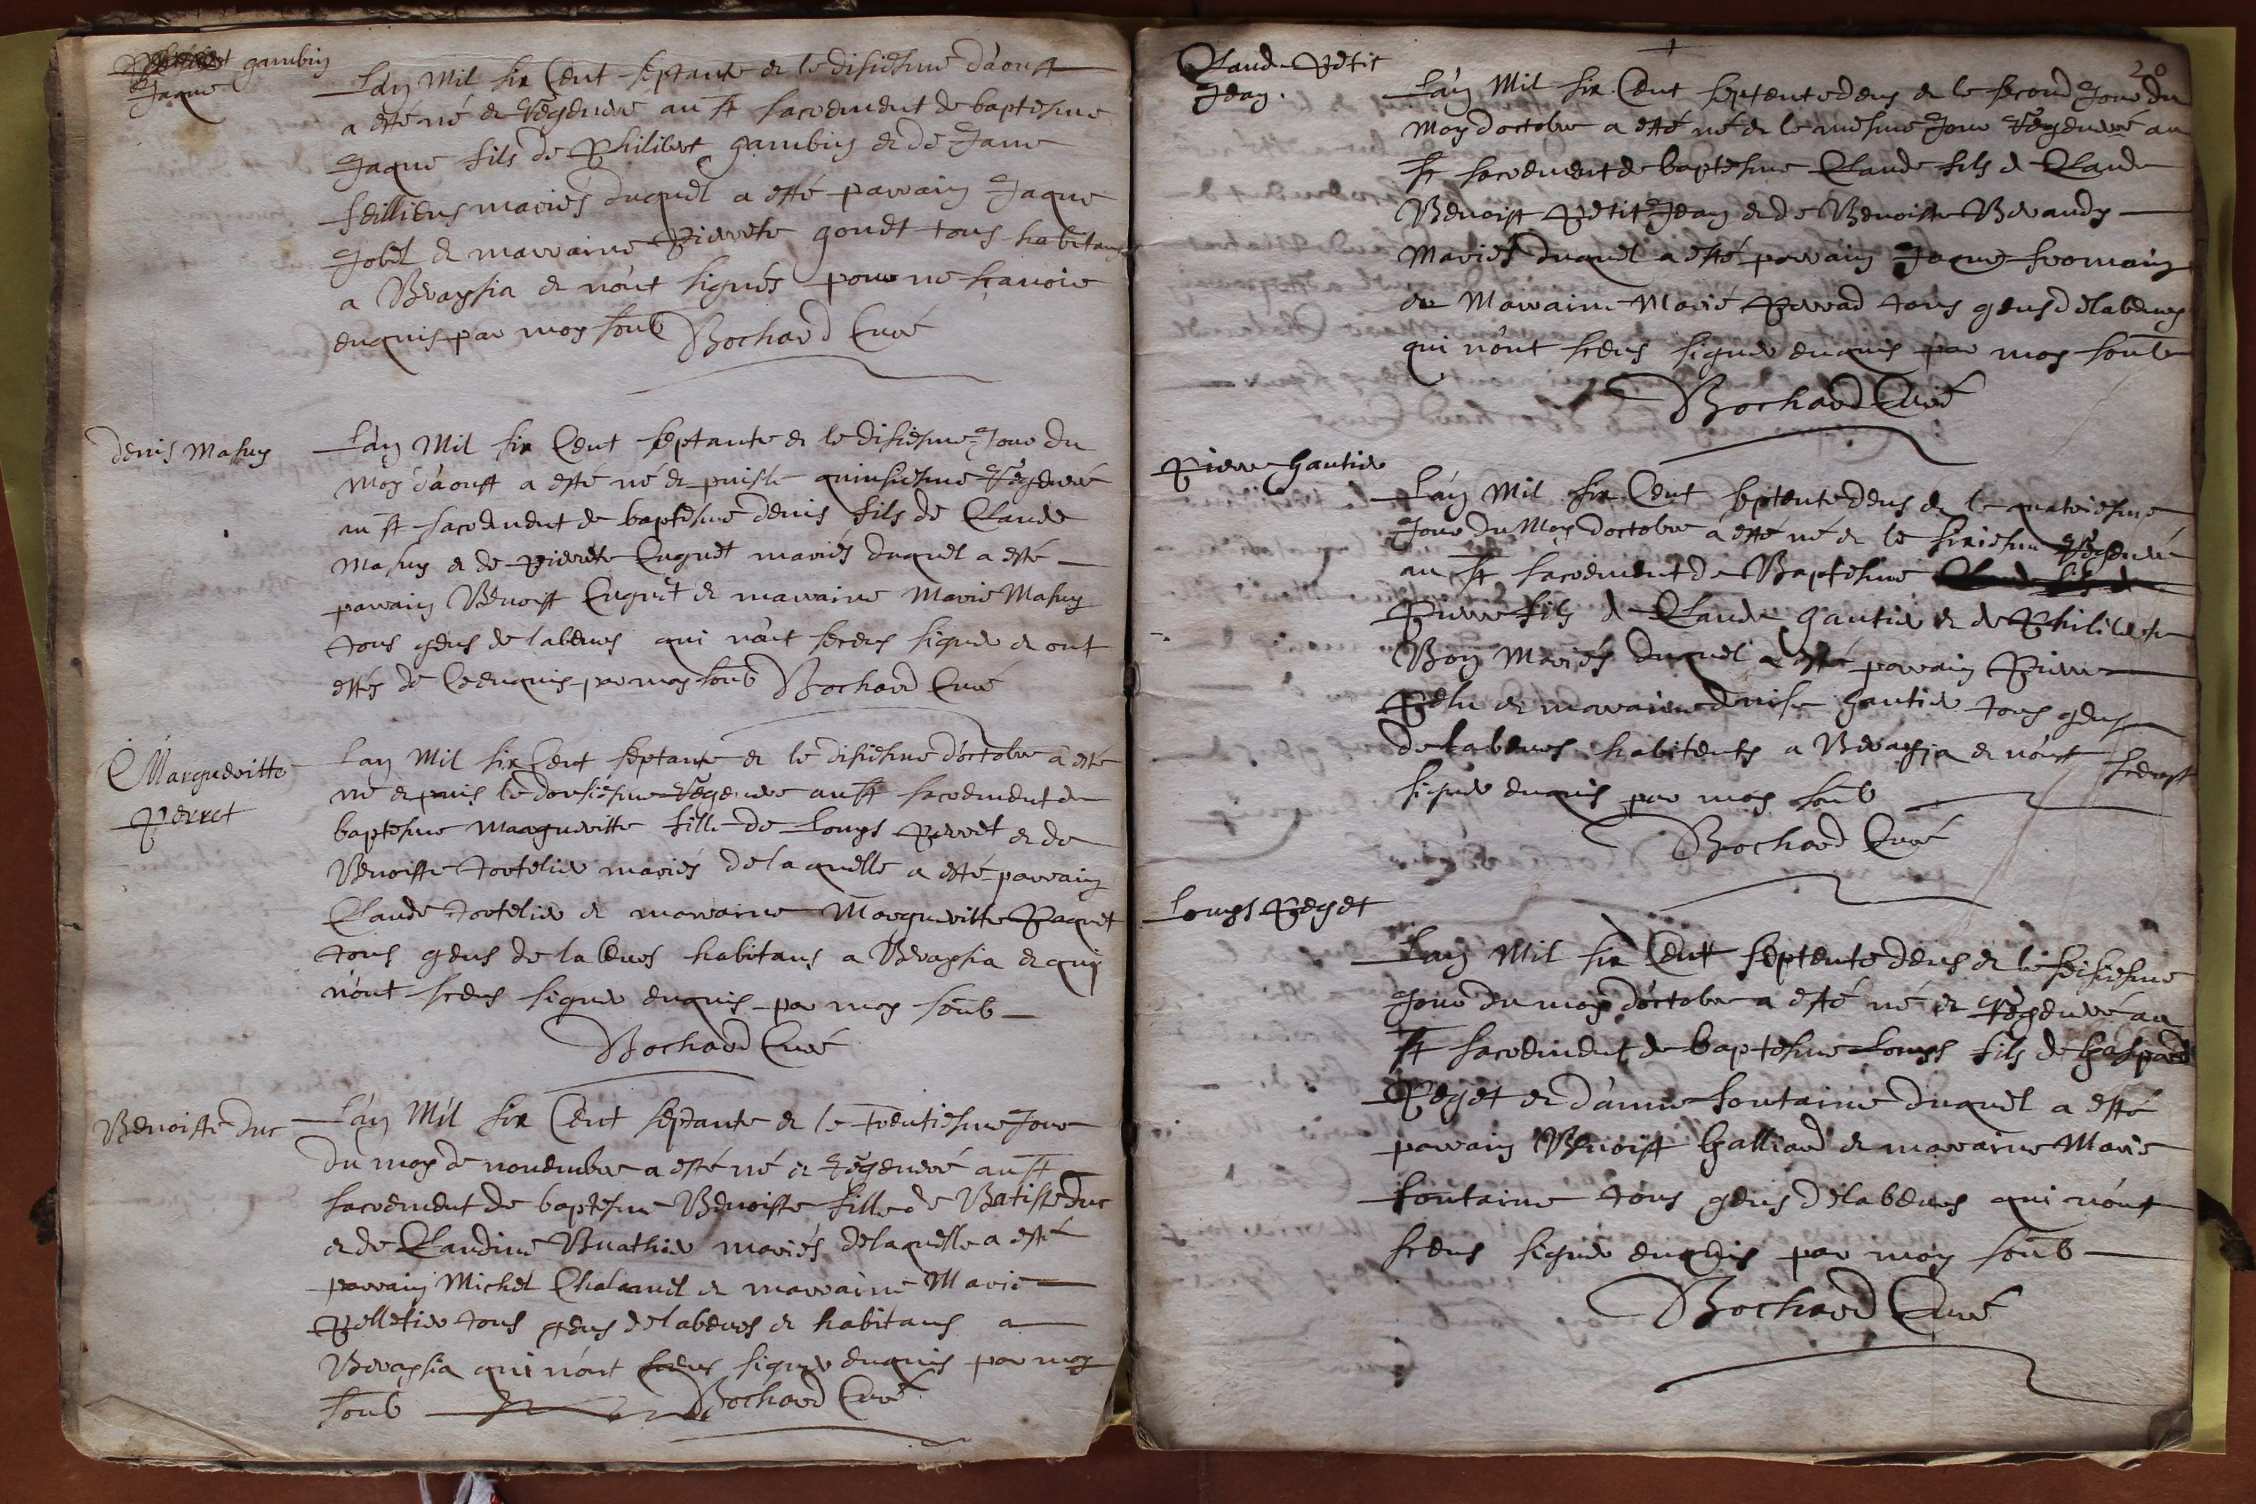 gambin
Jaque
L'an Mil six Cent septante et le disiesme d'aoust
a esté né et regeneré au st sacrement de baptesme
Jaque fils de Philibert gambin et de Jane
seilliens mariés duquel a esté parrain Jaque
Jobet et marraine Pierrete gonet tous habitans
a Bragsia et n'ont signés pour ne sçavoir
enquis par moy soub Bochard Curé
denis Masuy
L'an Mil six Cent septante et le disiesme Jour du
moy d'aoust a esté né et puis le quinsiesme regeneré
au st sacrement de baptesme denis fils de Claude
Masuy et de Pierrete Cuguet mariés duquel a esté
parrain Benoist Cuguet et marraine Marie Masuy
tous gens de labeurs qui n'ont sceus signer et ont
estés de Ce enquis par moy soub Bochard Curé
Margueritte
Perret
L'an Mil six Cent septante et le disiesme d'octobre a esté
né et puis le dousiesme regenere au st sacrement de
baptesme Margueritte fille de Louys Perret et de
Benoiste tortelier mariés de laquelle a esté parrain
Claude tortelier et marraine Margueritte Paquet
tous gens de labeurs habitans a Bragsia et qui
n'ont sceus signer enquis par moy soub
Bochard Curé
Benoiste duc
L'an Mil six Cent septante et le trentiesme Jour
du moy de novembre a esté né et regeneré au st
sacrement de baptesme Benoiste fille de Batiste duc
et de Claudine Buathier mariés de laquelle a esté
parrain Michel Chalamel et marraine Marie
Pelletier tous gens de labeurs et habitans a
Bragsia qui n'ont sceus signer enquis par moy
soub Bochard Curé
20
Claude Petit
Jean.
L'an Mil six Cent septente deus et le second Jour du
moy d'octobre a esté né et le mesme Jour regeneré au
st sacrement de baptesme Claude fils de Claude
Benoist Petit Jean et de Benoiste Beraudy
Mariés duquel a esté parrain Jaque fromain
et Marraine Marie Perrad tous gens de labeurs
qui n'ont sceus signer enquis par moy soub
Bochard Curé
Pierre Gautier
L'an Mil six Cent septente deus et le quatriesme
Jour du Moy d'octobre a esté né et le sixiesme regeneré
au st sacrement de Baptesme
Pierre fils de Claude Gautier et de Philiberte
Bon Mariés duquel a esté parrain Pierre
Pelu et marraine denise Gautier tous gens
de labeurs habitents a Bragsia et n'ont sceust
signer enquis par moy soub
Bochard Curé
Louys Peget
L'an Mil six Cent septente deus et le sisiesme
Jour du moy d'octobre a esté né et regeneré au
st sacrement de baptesme Louys fils de Gaspard
Peget et d'anne fontaine duquel a esté
parrain Benoist Galliard et marraine Marie
fontaine tous gens de labeurs qui n'ont
sceus signer enquis par moy soub
Bochard Curé